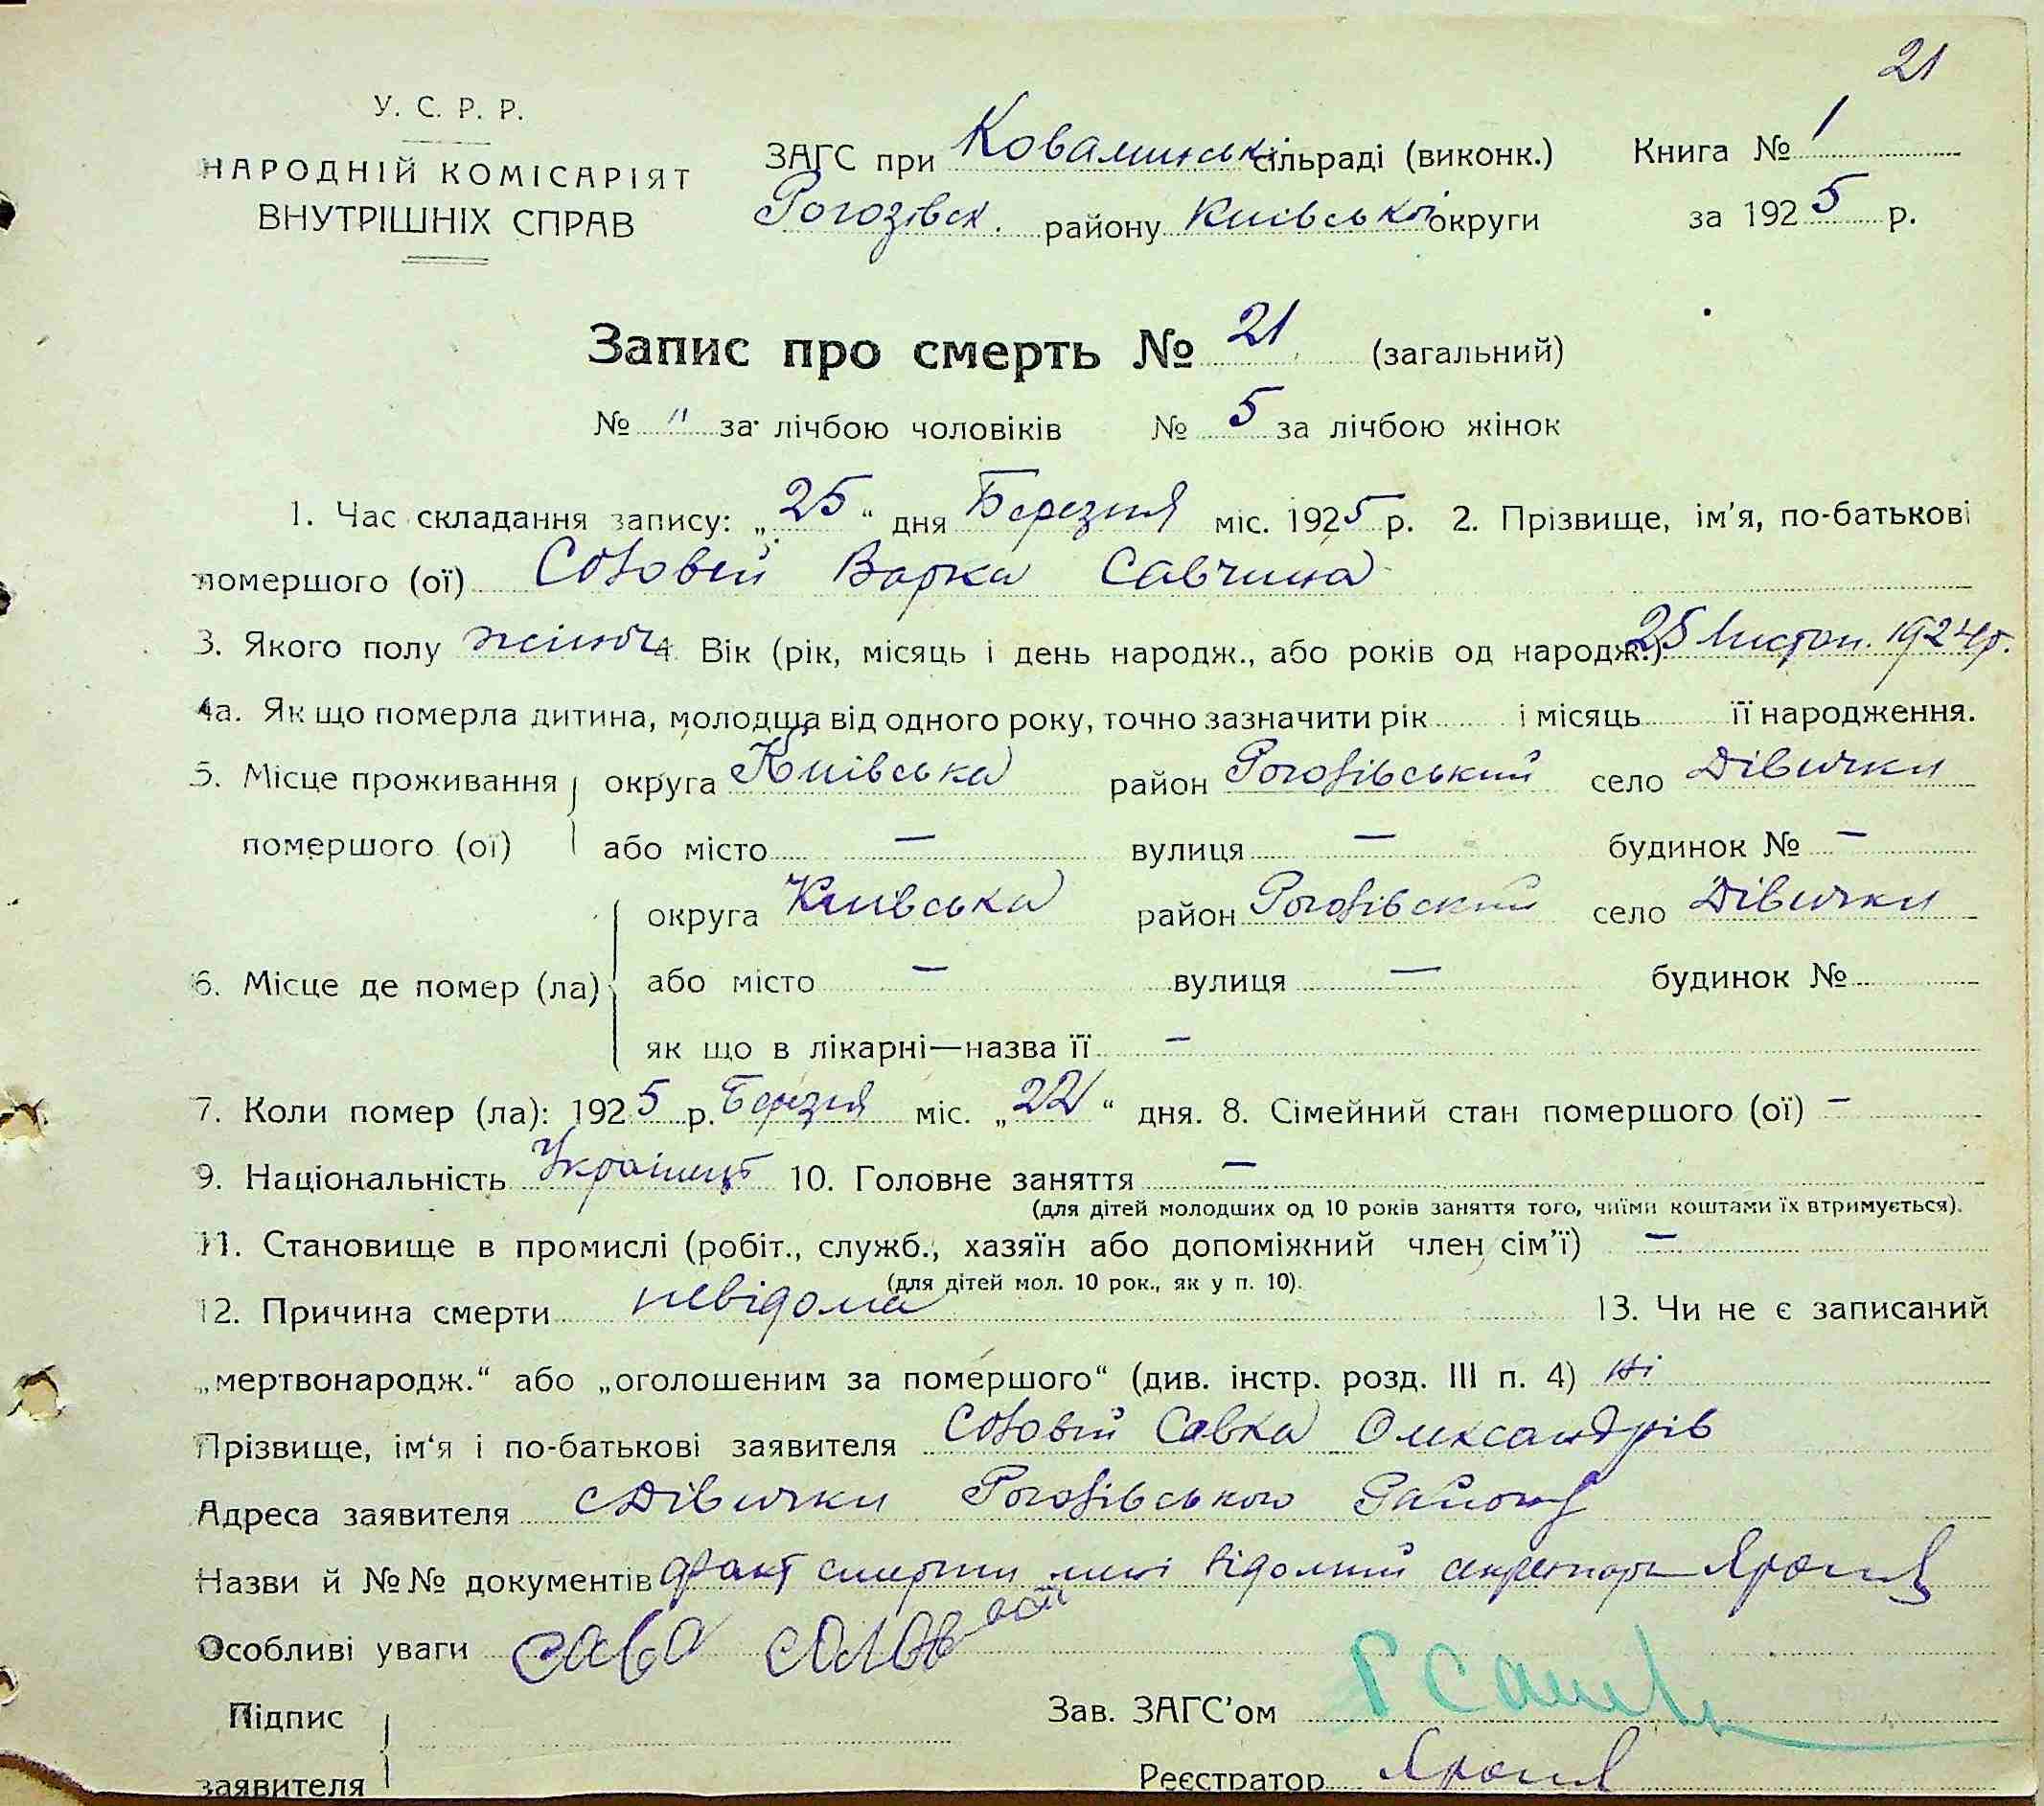 21
У. С. Р. Р.
НАРОДНІЙ КОМІСАРІЯТ
ВНУТРІШНІХ СПРАВ
ЗАГС при Ковалинськ сільраді (виконк.) Книга № 1
Рогозівск. району Київської округи за 1925 р.
Запис про смерть № 21 (загальний)
№ " за лічбою чоловіків № 5 за лічбою жінок
1. Час складання запису: „25“ дня Березня міс. 1925 р. 2. Прізвище, ім'я, по-батькові
помершого (ої) Соловей Варка Савчина
3. Якого полу жіноч 4. Вік (рік, місяць і день народж., або років од народж.) 25 Листоп. 1924р.
4а. Як що померла дитина, молодща від одного року, точно зазначити рік і місяць її народження.
5. Місце проживання округа Київська район Рогозівський село Дівички
помершого (ої) або місто — вулиця — будинок № —
округа Київська район Рогозівский село Дівички
6. Місце де помер (ла) або місто — вулиця — будинок №
як що в лікарні—назва її —
7. Коли помер (ла): 1925 р. Березня міс. „22“ дня. 8. Сімейний стан помершого (ої) —
9. Національність Українец 10. Головне заняття —
(для дітей молодших од 10 років заняття того, чиїми коштами їх втримується).
11. Становище в промислі (робіт., служб., хазяїн або допоміжний член сім'ї) —
(для дітей мол. 10 рок., як у п. 10).
12. Причина смерти невідома 13. Чи не є записаний
„мертвонародж.“ або „оголошеним за помершого“ (див. інстр. розд. III п. 4) ні
Прізвище, ім'я і по-батькові заявителя Соловій Савка Олександрів
Адреса заявителя с Дівички Рогозівського Району
Назви й №№ документів факт смерти мині відомий секретарь
Особливі уваги сава соловей
Підпис Зав. ЗАГС'ом
заявителя Реєстратор